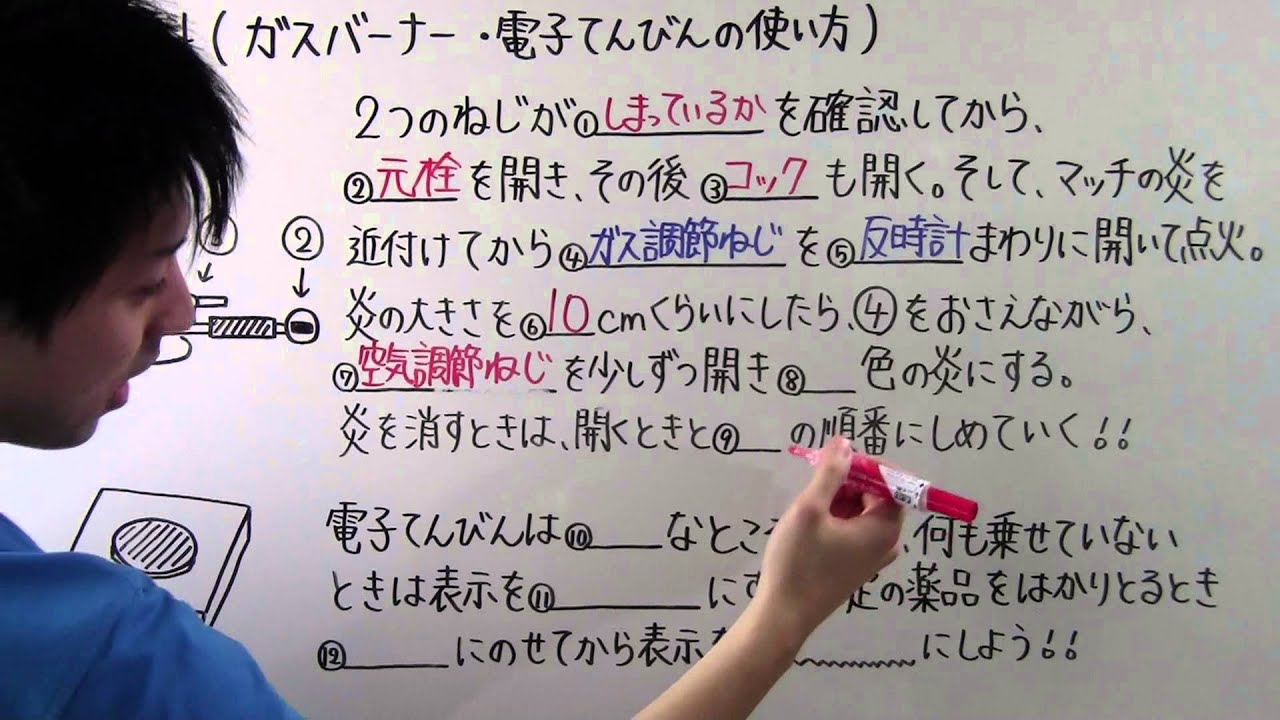 (ガスバーナー・電子てんびんの使い方)
2つのねじが①しまっているかを確認してから、
②元栓を開き、その後③コックも開く。そして、マッチの炎を
近付けてから④ガス調節ねじを⑤反時計まわりに開いて点火。
炎の大きさを⑥10cmくらいにしたら、④をおさえながら、
⑦空気調節ねじを少しずつ開き⑧色の炎にする。
炎を消すときは、開くときと⑨の順番にしめていく!!
②
電子てんびんは⑩なところ、何も乗せていない
ときは表示を⑪にすの薬品をはかりとるとき
⑫にのせてから表示をにしよう!!